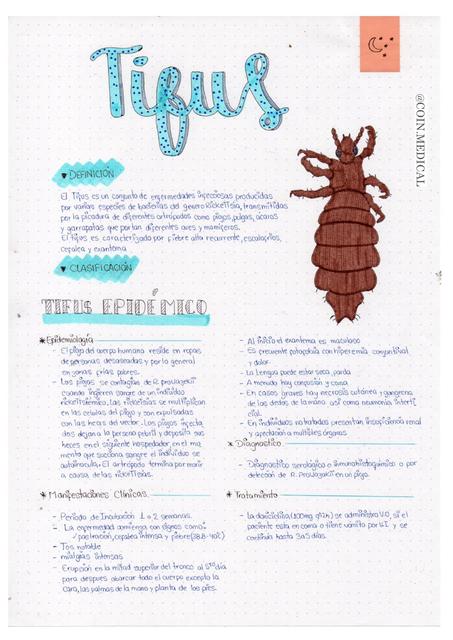 Tifus
@COIN.MEDICAL
▼ DEFINICIÓN
El Tifus es un conjunto de enfermedades infecciosas producidas
por varias especies de bacterias del genero rickettsia, transmitidas
por la picadura de diferentes artrópodos como piojos, pulgas, ácaros
y garrapatas que portan diferentes aves y mamíferos.
El tifus es caracterizado por fiebre alta recurrente, escalofríos,
cefalea y exantema
▼ CLASIFICACIÓN
TIFUS EPIDÉMICO
* Epidemiología
- El piojo del cuerpo humano reside en ropas
de personas desaseadas y por lo general
en zonas frias pobres.
- Los piojos se contagian de R. Prowazekii
cuando ingieren sangre de un individuo
rickettsiémico, las rickettsias se multiplican
en las celulas del piojo y son expulsadas
con las heces del vector. Los piojos infecta
dos dejan a la persona febril y deposita sus
heces en el siguiente hospedador, en el mo
mento que succiona sangre el individuo se
autoinocula. El artrópodo termina por morir
a causa de las rickettsias.
* Manifestaciones Clínicas.
- Periodo de Incubación 1 o 2 semanas.
- La enfermedad comienza con signos como:
✓ postración, cefalea intensa y fiebre (38.8-40°C)
- Tos notable
- mialgias intensas
- Erupción en la mitad superior del tronco al 5to día
para despues abarcar todo el cuerpo excepto la
cara, las palmas de la mano y planta de los pies.
- Al inicio el exantema es maculoso
- Es frecuente fotofobia con hiperemia conjuntival
y dolor.
- La lengua puede estar seca, parda
- A menudo hay confusión y coma
- En casos graves hay necrosis cutánea y gangrena
de los dedos de la mano así como neumonía intersti
cial.
- En individuos no tratados presentan insuficiencia renal
y afectación a multiples órganos
* Diagnostico
- Diagnostico serológico o inmunohistoquimico o por
detección de R. Prowazekii en un piojo.
* Tratamiento
- La doxiciclina (100mg c/12h) se administra V.O, si el
paciente esta en coma o tiene vomito por V.I y se
continúa hasta 3 a 5 días.